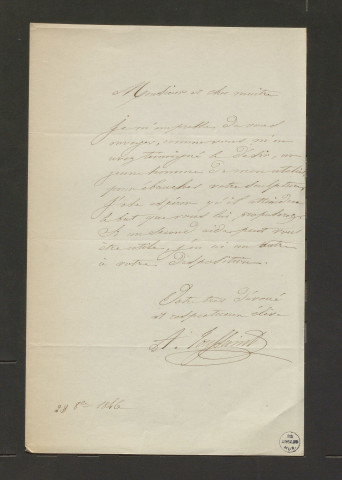 Monsieur et cher maître
Je m'empresse de vous
envoyer, comme vous m'en
avez témoigné le désir, un
jeune homme de mon atelier
pour ébaucher votre
J'ose espérer qu'il atteindra
le but que vous lui proposez
Si un second aide peut vous
être utile, j'en ai un autre
à votre disposition.
Votre très dévoué
et respectueux élève
A.
28 8bre 1846